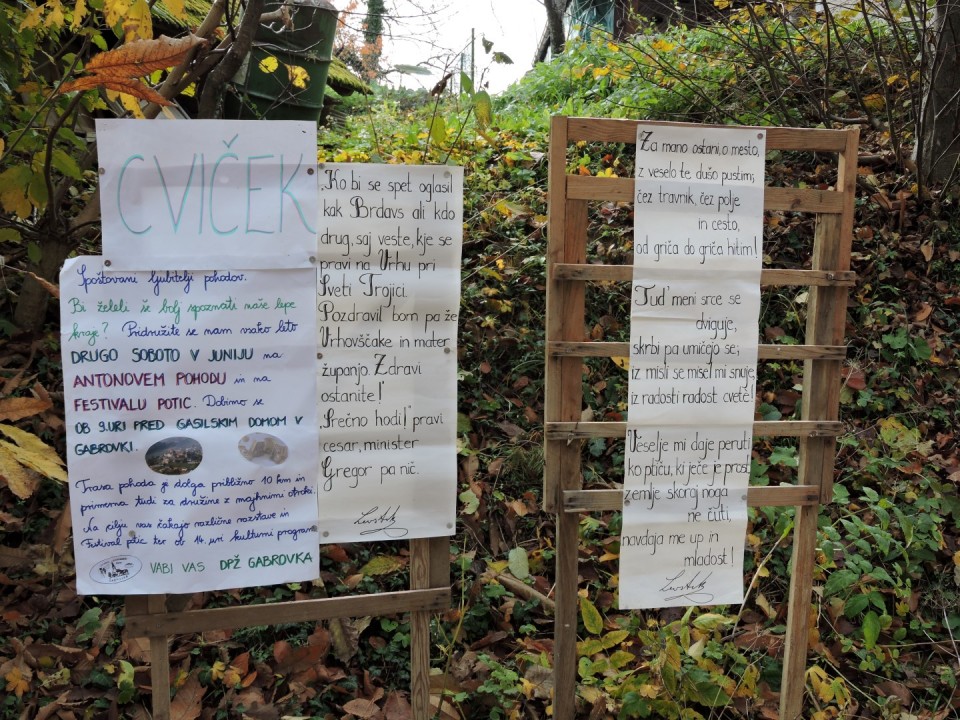 CVIČEK
Spoštovani ljubitelji pohodov.
Bi želeli še bolj spoznati naše lepe
kraje? Pridružite se nam vsako leto
DRUGO SOBOTO V JUNIJU na
ANTONOVEM POHODU in na
FESTIVALU POTIC. Dobimo se
OB 9.URI PRED GASILSKIM DOMOM V
GABROVKI.
Trasa pohoda je dolga približno 10 km in
primerna tudi za družine z majhnimi otroki.
Na cilju vas čakajo različne razstave in
Festival potic ter ob 14. uri kulturni program
VABI VAS DPŽ GABROVKA
„Ko bi se spet oglasil
kak Brdavs ali kdo
drug, saj veste, kje se
pravi na Vrhu pri
Sveti Trojici.
Pozdravil bom pa že
Vrhovščake in mater
županjo. Zdravi
ostanite!
„Srečno hodi!" pravi
cesar, minister
Gregor pa nič.
Levstik
Za mano ostani, o mesto,
z veselo te dušo pustim;
čez travnik, čez polje
in cesto,
od griča do griča hitim!
Tud' meni srce se
dviguje,
skrbi pa umičejo se;
iz misli se misel mi snuje,
iz radosti radost cvetè!
Veselje mi daje peruti
ko ptiču, ki ječe je prost;
zemlje skoraj noga
ne čuti,
navdaja me up in
mladost!
Levstik